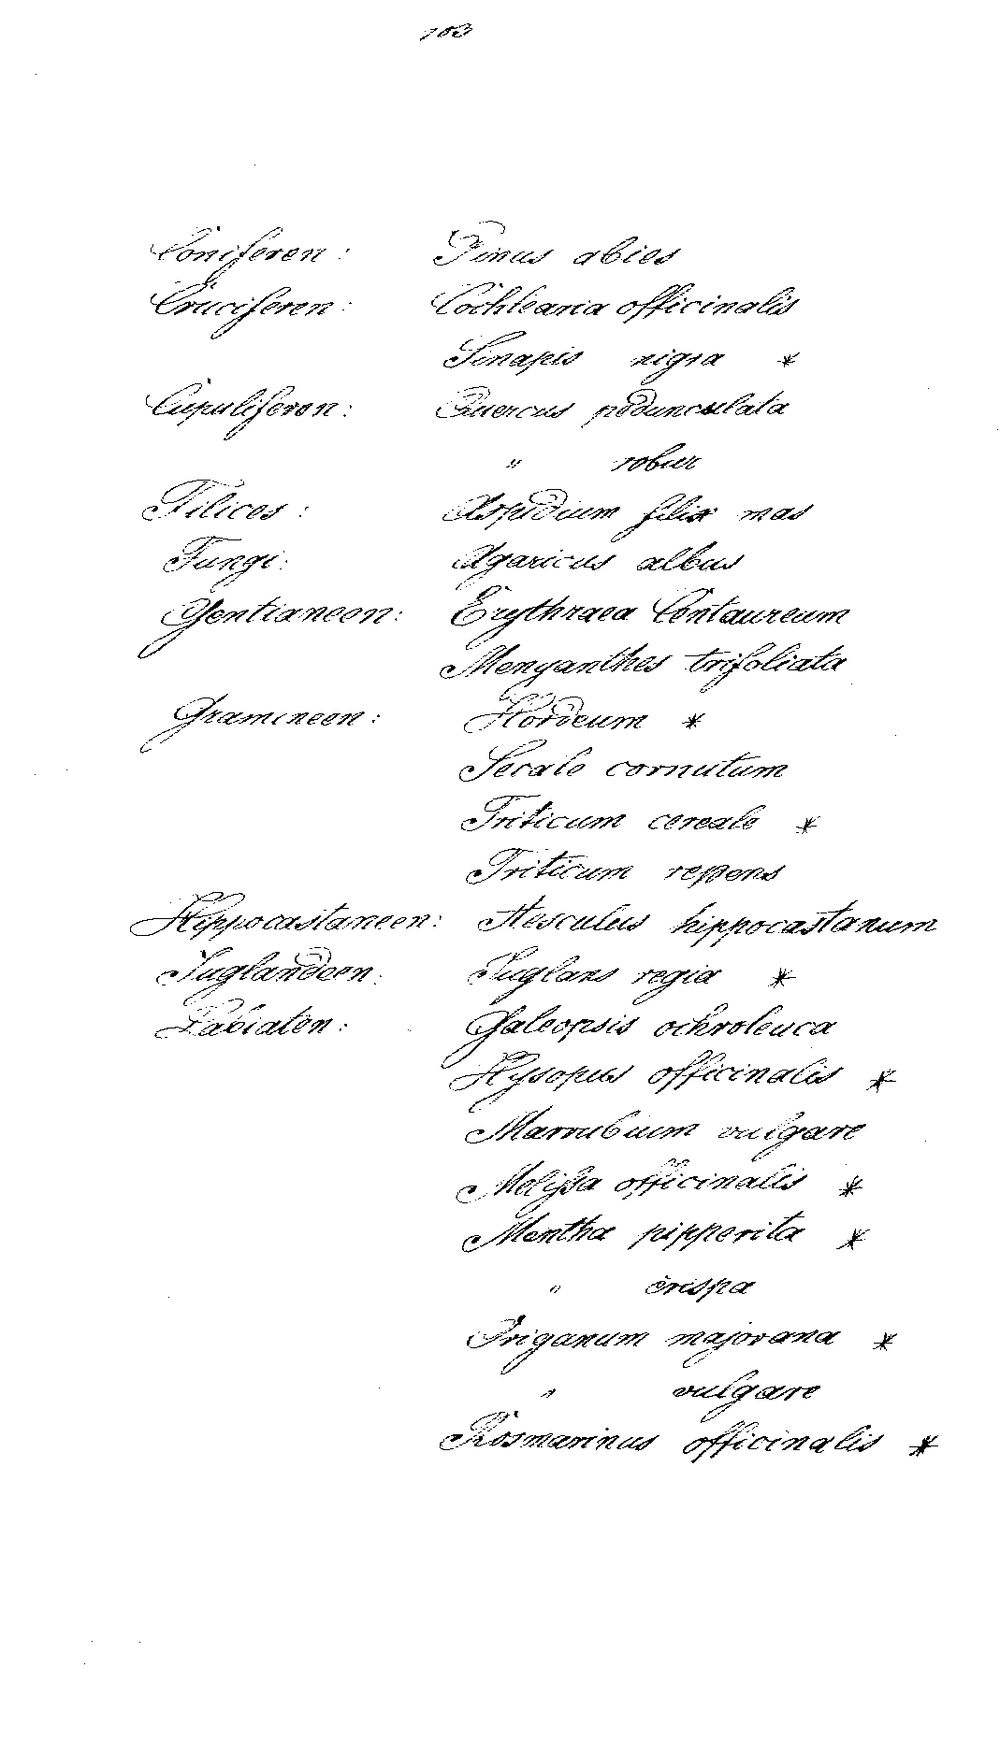 103
Coniferen: Pinus abies
Cruciferen: Cochlearia officinalis
Sinapis nigra *
Cupuliferen: Quercus pedunculata
" robur
Filices: Aspidium filix mas
Fungi: Agaricus albus
Gentianeen: Erythraea Centaureum
Menyanthes trifoliata
Gramineen: Hordeum *
Secale cornutum
Triticum cereale *
Triticum repens
Hippocastaneen: Aesculus hippocastanum
Juglandeen: Juglans regia *
Labiaten: Galeopsis ochroleuca
Hysopus officinalis *
Marrubium vulgare
Melissa officinalis *
Mentha pipperita *
" crispa
Origanum majorana *
" vulgare
Rosmarinus officinalis *